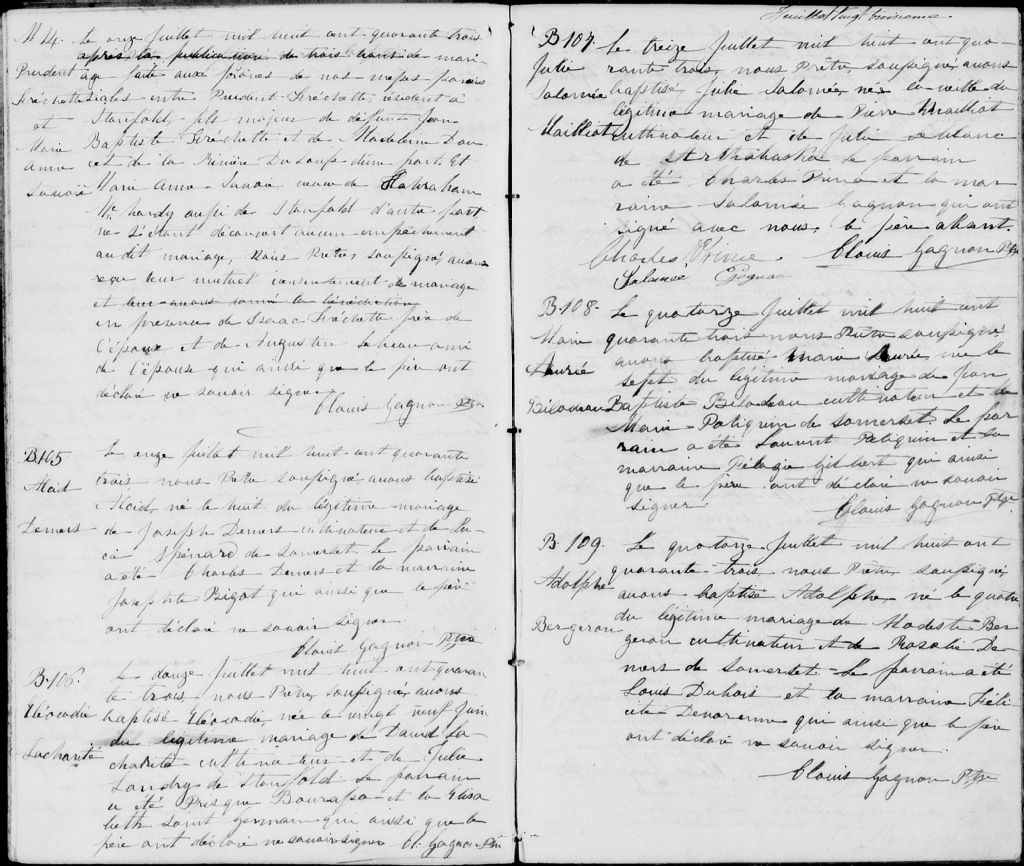 M 14. Le onze Juillet mil huit cent quarante trois
après la publication de trois bans de mari-
Prudent age faite aux prônes de nos messes parois
Fréchette siales entre Prudent Fréchette, résident à
et Stanfold fils majeur de défunt Jean
Marie Baptiste Fréchette et de Madeleine Dou
Anne cet de la Rivière Du Loup d'une part Et
Savoie Marie Anne Savoie, veuve de Abraham
Mc hardy aussi de Stanfold d'autre part
ne s'étant découvert aucun empêchement
au dit mariage, Nous Prêtre, soussigné, avons
reçu leur mutuel consentement de mariage
et leur avons donné la bénédiction
en présence de Isaac Fréchette père de
l'époux et de Augustin Lebeau ami
de l'épouse qui ainsi que le père ont
déclaré ne savoir signer
Clovis Gagnon Ptre
B105 Le onze juillet mil huit cent quarante
trois nous Prêtre soussigné avons baptisé
né le huit du légitime mariage
Demers de Joseph Demers cultivateur et de Lu-
ce Spénard de Somerset. Le parrain
a été Charles Demers et la marraine
Josephte Bigot qui ainsi que le père
ont déclaré ne savoir signer.
Clovis Gagnon Ptre
B. 106 Le douze Juillet mil huit cent quaran
te trois nous Prêtre, soussigné, avons
Eléocadie baptisé Eléocadie, née le vingt neuf Juin
du légitime mariage de David La-
Lacharité charité cultivateur et de Julie
Landry de Stanfold. Le parrain
a été Prisque Bourassa et la Elisa
beth Saint Germain qui aussi que le
père ont déclaré ne savoir signer Cl. Gagnon Ptre
Feuillet vingt troisieme
B 107 Le treize Juillet mil huit cent qua-
Julie rante trois, nous Prêtre, soussigné, avons
Salomée baptisé, Julie Salomée, née la veille du
légitime mariage de Pierre Mailhot
Mailhot cultivateur et de Julie
de Arthabaska le parrain
a été Charles Prince et la mar
raine Salomée Gagnon qui ont
signé avec nous, le père absent.
Charles Prince. Clovis Gagnon Ptre
Salomée Gagnon
B.108. Le quatorze Juillet mil huit cent
Marie quarante trois nous Prêtre soussigné
avons baptisé Marie née le
sept du légitime mariage de Jean
Bilodeau Baptiste Bilodeau cultivateur et de
Marie Peligrin de Somerset. Le par
rain a été Laurent Peligrin et la
marraine Pélagie Gilbert qui ainsi
que le père ont déclaré ne savoir
signer.
Clovis Gagnon Ptre
B. 109. Le quatorze Juillet mil huit cent
quarante trois, nous Prêtre, soussigné,
Adolphe avons baptisé Adolphe, né le quatre
du légitime mariage de Modeste Ber
Bergeron geron cultivateur et de Rosalie De-
mers de Somerset. Le parrain a été
Louis Dubois et la marraine Féli
cité qui ainsi que le père
ont déclaré ne savoir signer.
Clovis Gagnon Ptre